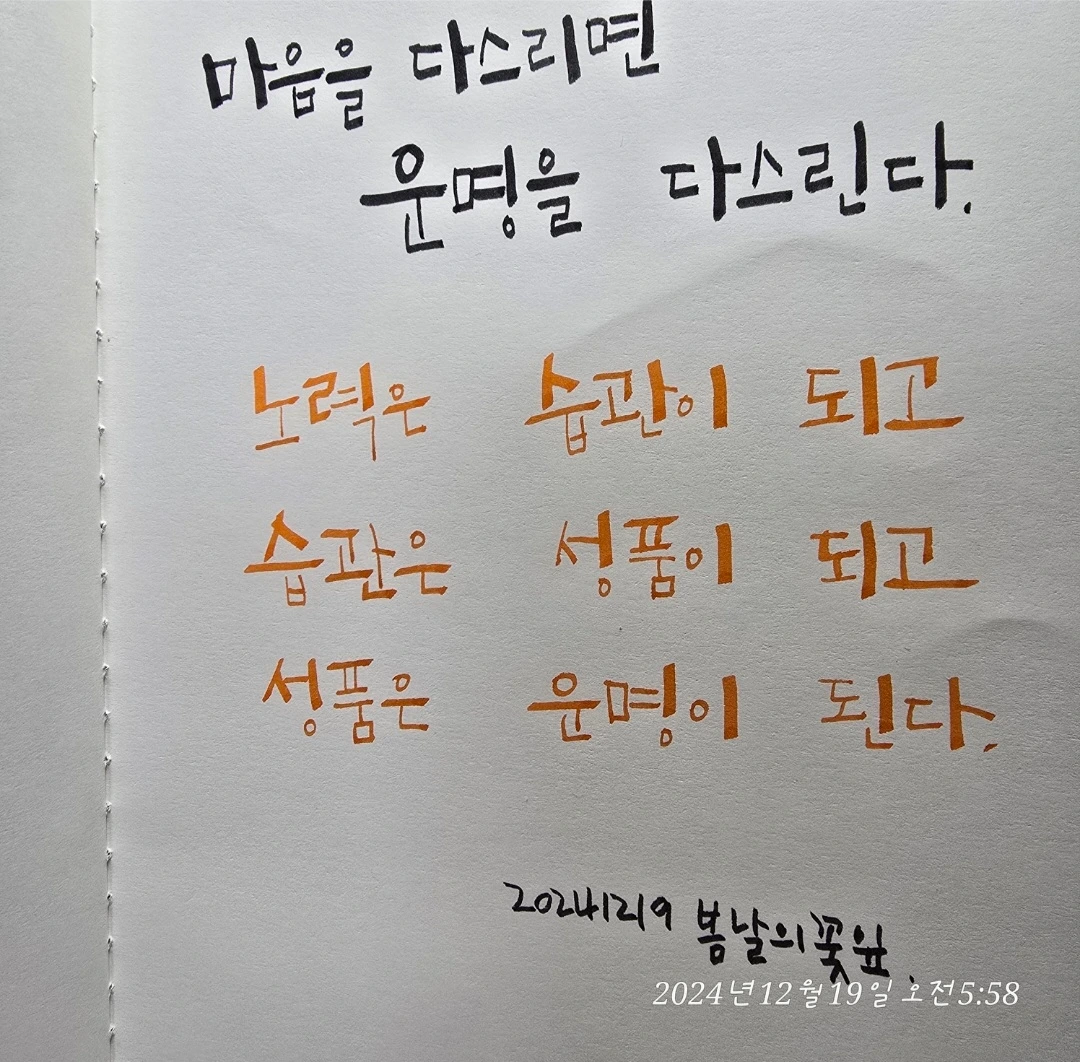 마음을 다스리면
운명을 다스린다.
노력은 습관이 되고
습관은 성품이 되고
성품은 운명이 된다.
20241219 봄날의꽃잎.
2024년12월19일 오전5:58